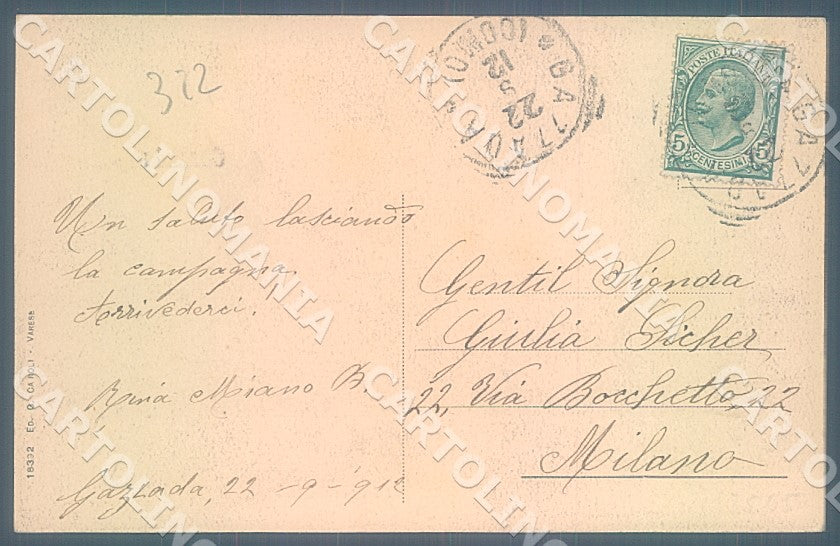 322
GAZZADA (COMO)
22
9
12
POSTE ITALIANE
5 CENTESIMI 5
Un saluto lasciando
la campagna
Arrivederci.
Miano
Gazzada, 22-9-912
Gentil Signora
Giulia Sicher
22, Via Bocchetto, 22
Milano
18392 ED. CAROLI - VARESE
CARTOLINOMANIA
CARTOLINOMANIA
CARTOLINOMANIA
CARTOLINOMANIA
CARTOLINOMANIA
CARTOLINOMANIA